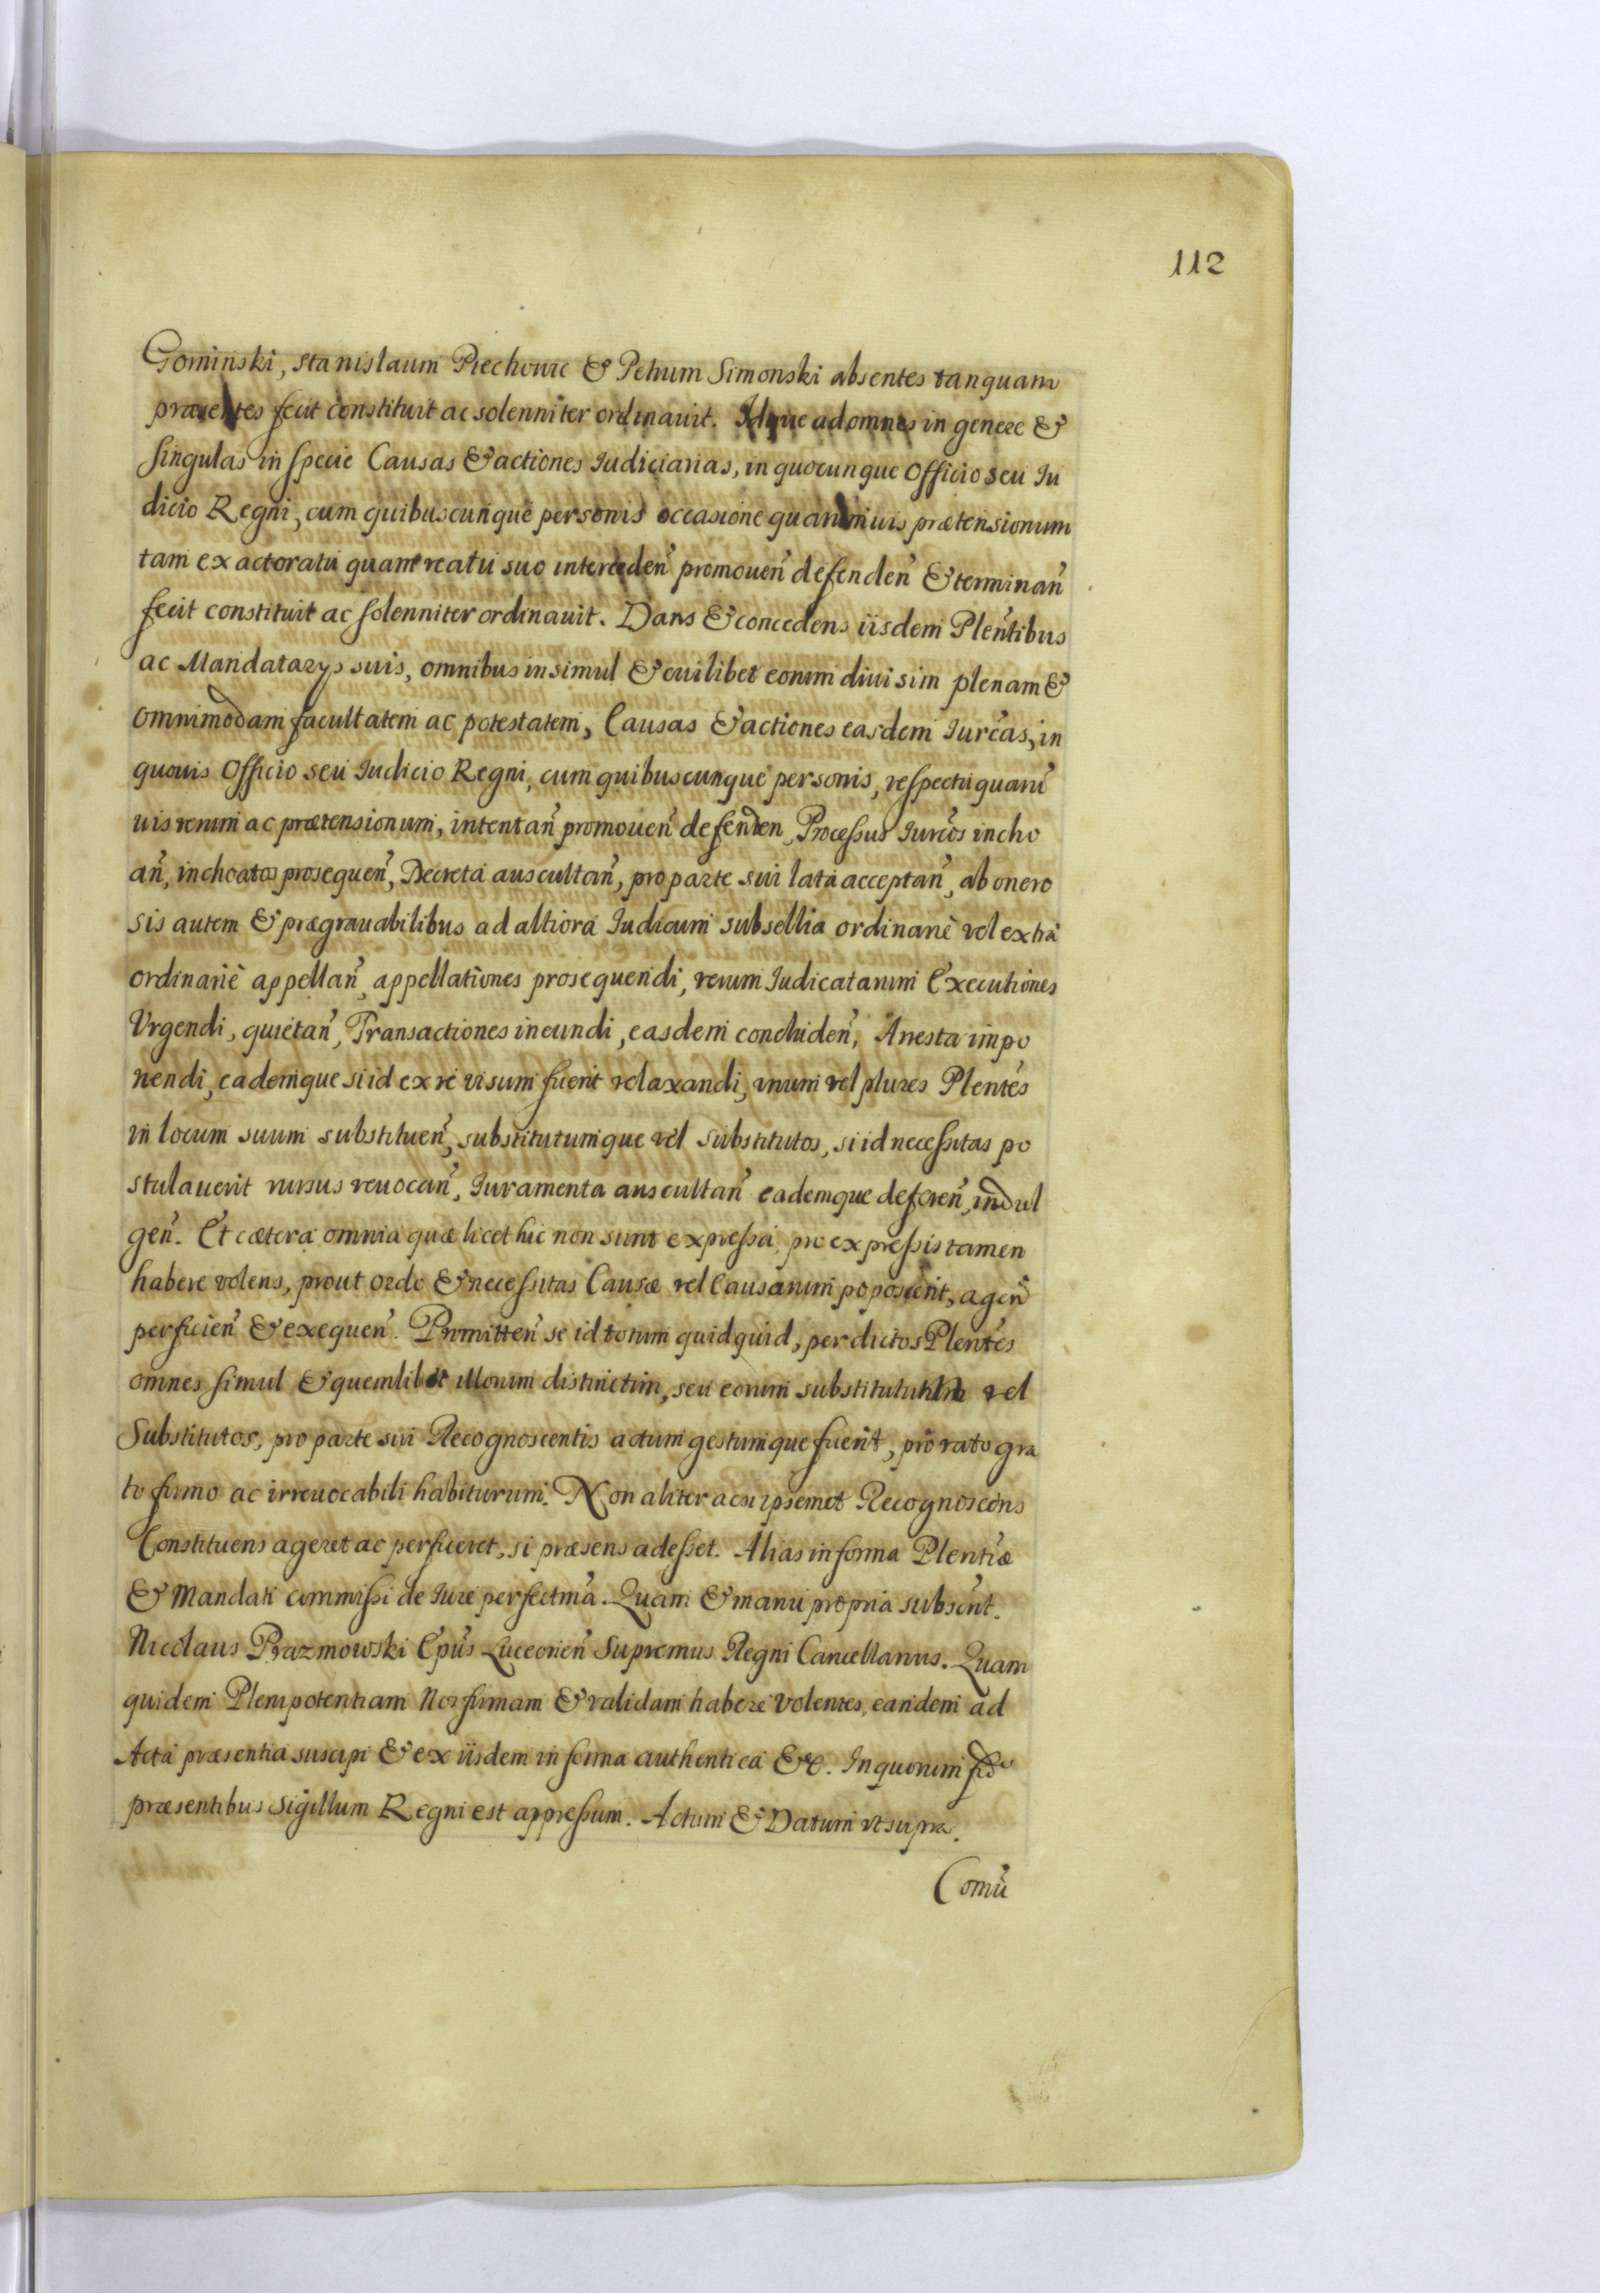 112
Gomiński, Stanislaum Piechowic & Petrum Simonski absentes tanquam
præsentes fecit constituit ac solenniter ordinauit. Idque ad omnes in genere &
singulas in specie Causas & actiones Iudiciarias, in quocunque Officio seu Iu
dicio Regni, cum quibuscunque personis occasione quarumuis prætensionum
tam ex actoratu quam reatu suo interceden̄ promouen̄ defenden̄ & terminan̄
fecit constituit ac solenniter ordinauit. Dans & concedens iisdem Plen̄tibus
ac Mandatarys suis, omnibus insimul & cuilibet eorum diuisim plenam &
omnimodam facultatem ac potestatem, Causas & actiones easdem Iurc̄as, in
quouis Officio seu Iudicio Regni, cum quibuscunque personis, respectu quarū
uis rerum ac prætensionum, intentan̄ promouen̄ defenden, Processus Iurc̄os incho
an̄, inchoatos prosequen̄, Decreta auscultan̄, pro parte sui lata acceptan̄, ab onero
sis autem & prægrauabilibus ad altiora Iudicum subsellia ordinarie vel extra
ordinarie appellan̄, appellationes prosequendi, rerum Iudicatarum Executiones
Vrgendi, quietan̄, Transactiones ineundi, easdem concluden̄, Arresta impo
nendi, eademque si id ex re visum fuerit relaxandi, vnum vel plures Plen̄tes
in locum suum substituen̄, substitutumque vel substitutos, si id necessitas po
stulauerit rursus reuocan̄, Iuramenta auscultan̄ eademque deferen̄, indul
gen̄. Et cætera omnia quæ licet hic non sunt expressa, pro expressis tamen
habere volens, prout ordo & necessitas Causæ vel Causarum poposcerit, agen̄
perficien̄ & exequen̄. Promitten̄ se id totum quidquid, per dictos Plen̄tes
omnes simul & quemlibet illorum distinctim, seu eorum substitutum vel
Substitutos, pro parte sui Recognoscentis actum gestumque fuerit, pro rato gra
to firmo ac irreuocabili habiturum. Non aliter ac si ipsemet Recognoscens
Constituens ageret ac perficeret, si præsens adesset. Alias in forma Plen̄tiæ
& Mandati commissi de Iure perfectm̄a. Quam & manu propria subscr̄it.
Nicolaus Prazmowski Ep̄us Luceorien̄ Supremus Regni Cancellarius. Quam
quidem Plenipotentiam Nos firmam & validam habere volentes, eandem ad
Acta præsentia suscipi & ex iisdem in forma authentica &c. In quorum fide
præsentibus Sigillum Regni est appressum. Actum & Datum vt supra.
Comū